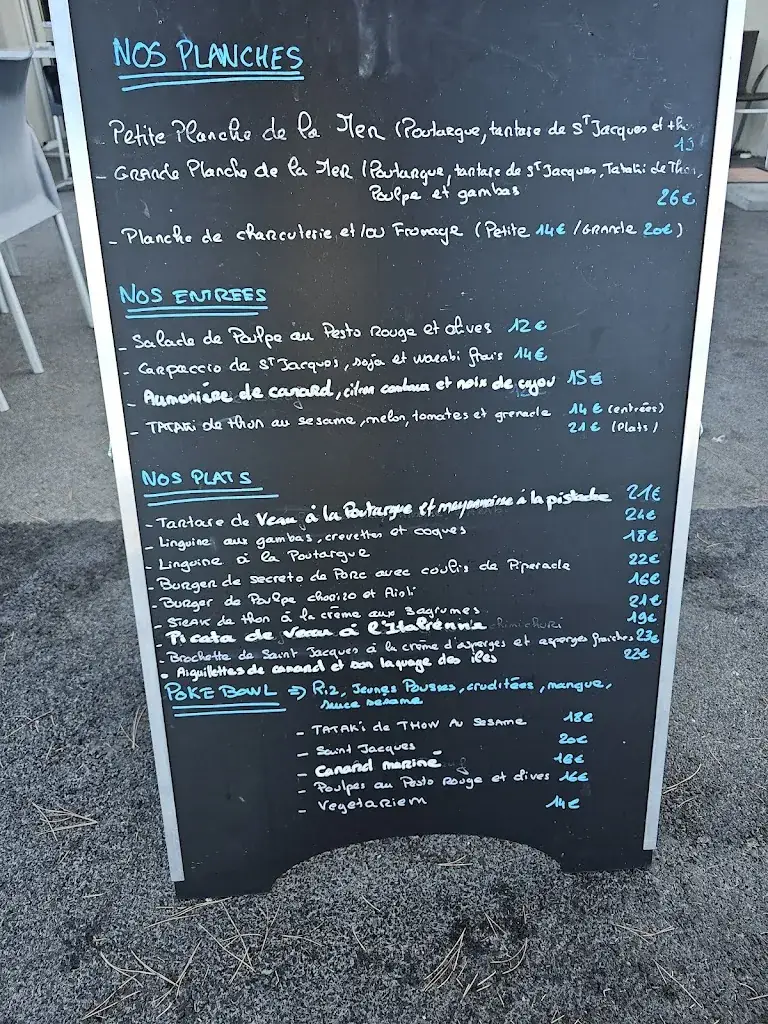 NOS PLANCHES
Petite Planche de la Mer (Poutargue, tartare de ST Jacques et th
13
- GRANde Planche de la MER (Poutargue, tartare de ST Jacques, Tataki de Thon,
Poulpe et gambas 26€
- Planche de charcuterie et/ou Fromage (Petite 14€ / GRANde 20€)
NOS ENTREES
- Salade de Poulpe au Pesto Rouge et olives 12€
- Carpaccio de ST Jacques, soja et wasabi frais 14€
- Aumonière de canard, citron combava et noix de cajou 15€
- TATAKi de thon au sesame, melon, tomates et grenade 14€ (entrées)
21€ (Plats)
NOS PLATS
- Tartare de Veau à la Poutargue et mayonnaise à la pistache 21€
- Linguine aux gambas, crevettes et coques 24€
- Linguine à la Poutargue 18€
- Burger de secreto de Porc avec coulis de Piperade 22€
- Burger de Poulpe chorizo et Aïoli 16€
- Steak de thon à la crème aux agrumes 21€
- Picata de veau à l'Italienne chimichuri 19€
- Brochette de Saint Jacques à la crème d'asperges et asperges fraiches 23€
• Aiguillettes de canard et son laquage des îles 22€
POKE BOWL => Riz, Jeunes Pousses, cruditées, mangue,
sauce sesame
- TATAKi de THON Au SesAME 18€
- Saint Jacques 20€
- Canard mariné 16€
- Poulpes au Pesto Rouge et olives 16€
- Vegetariem 14€